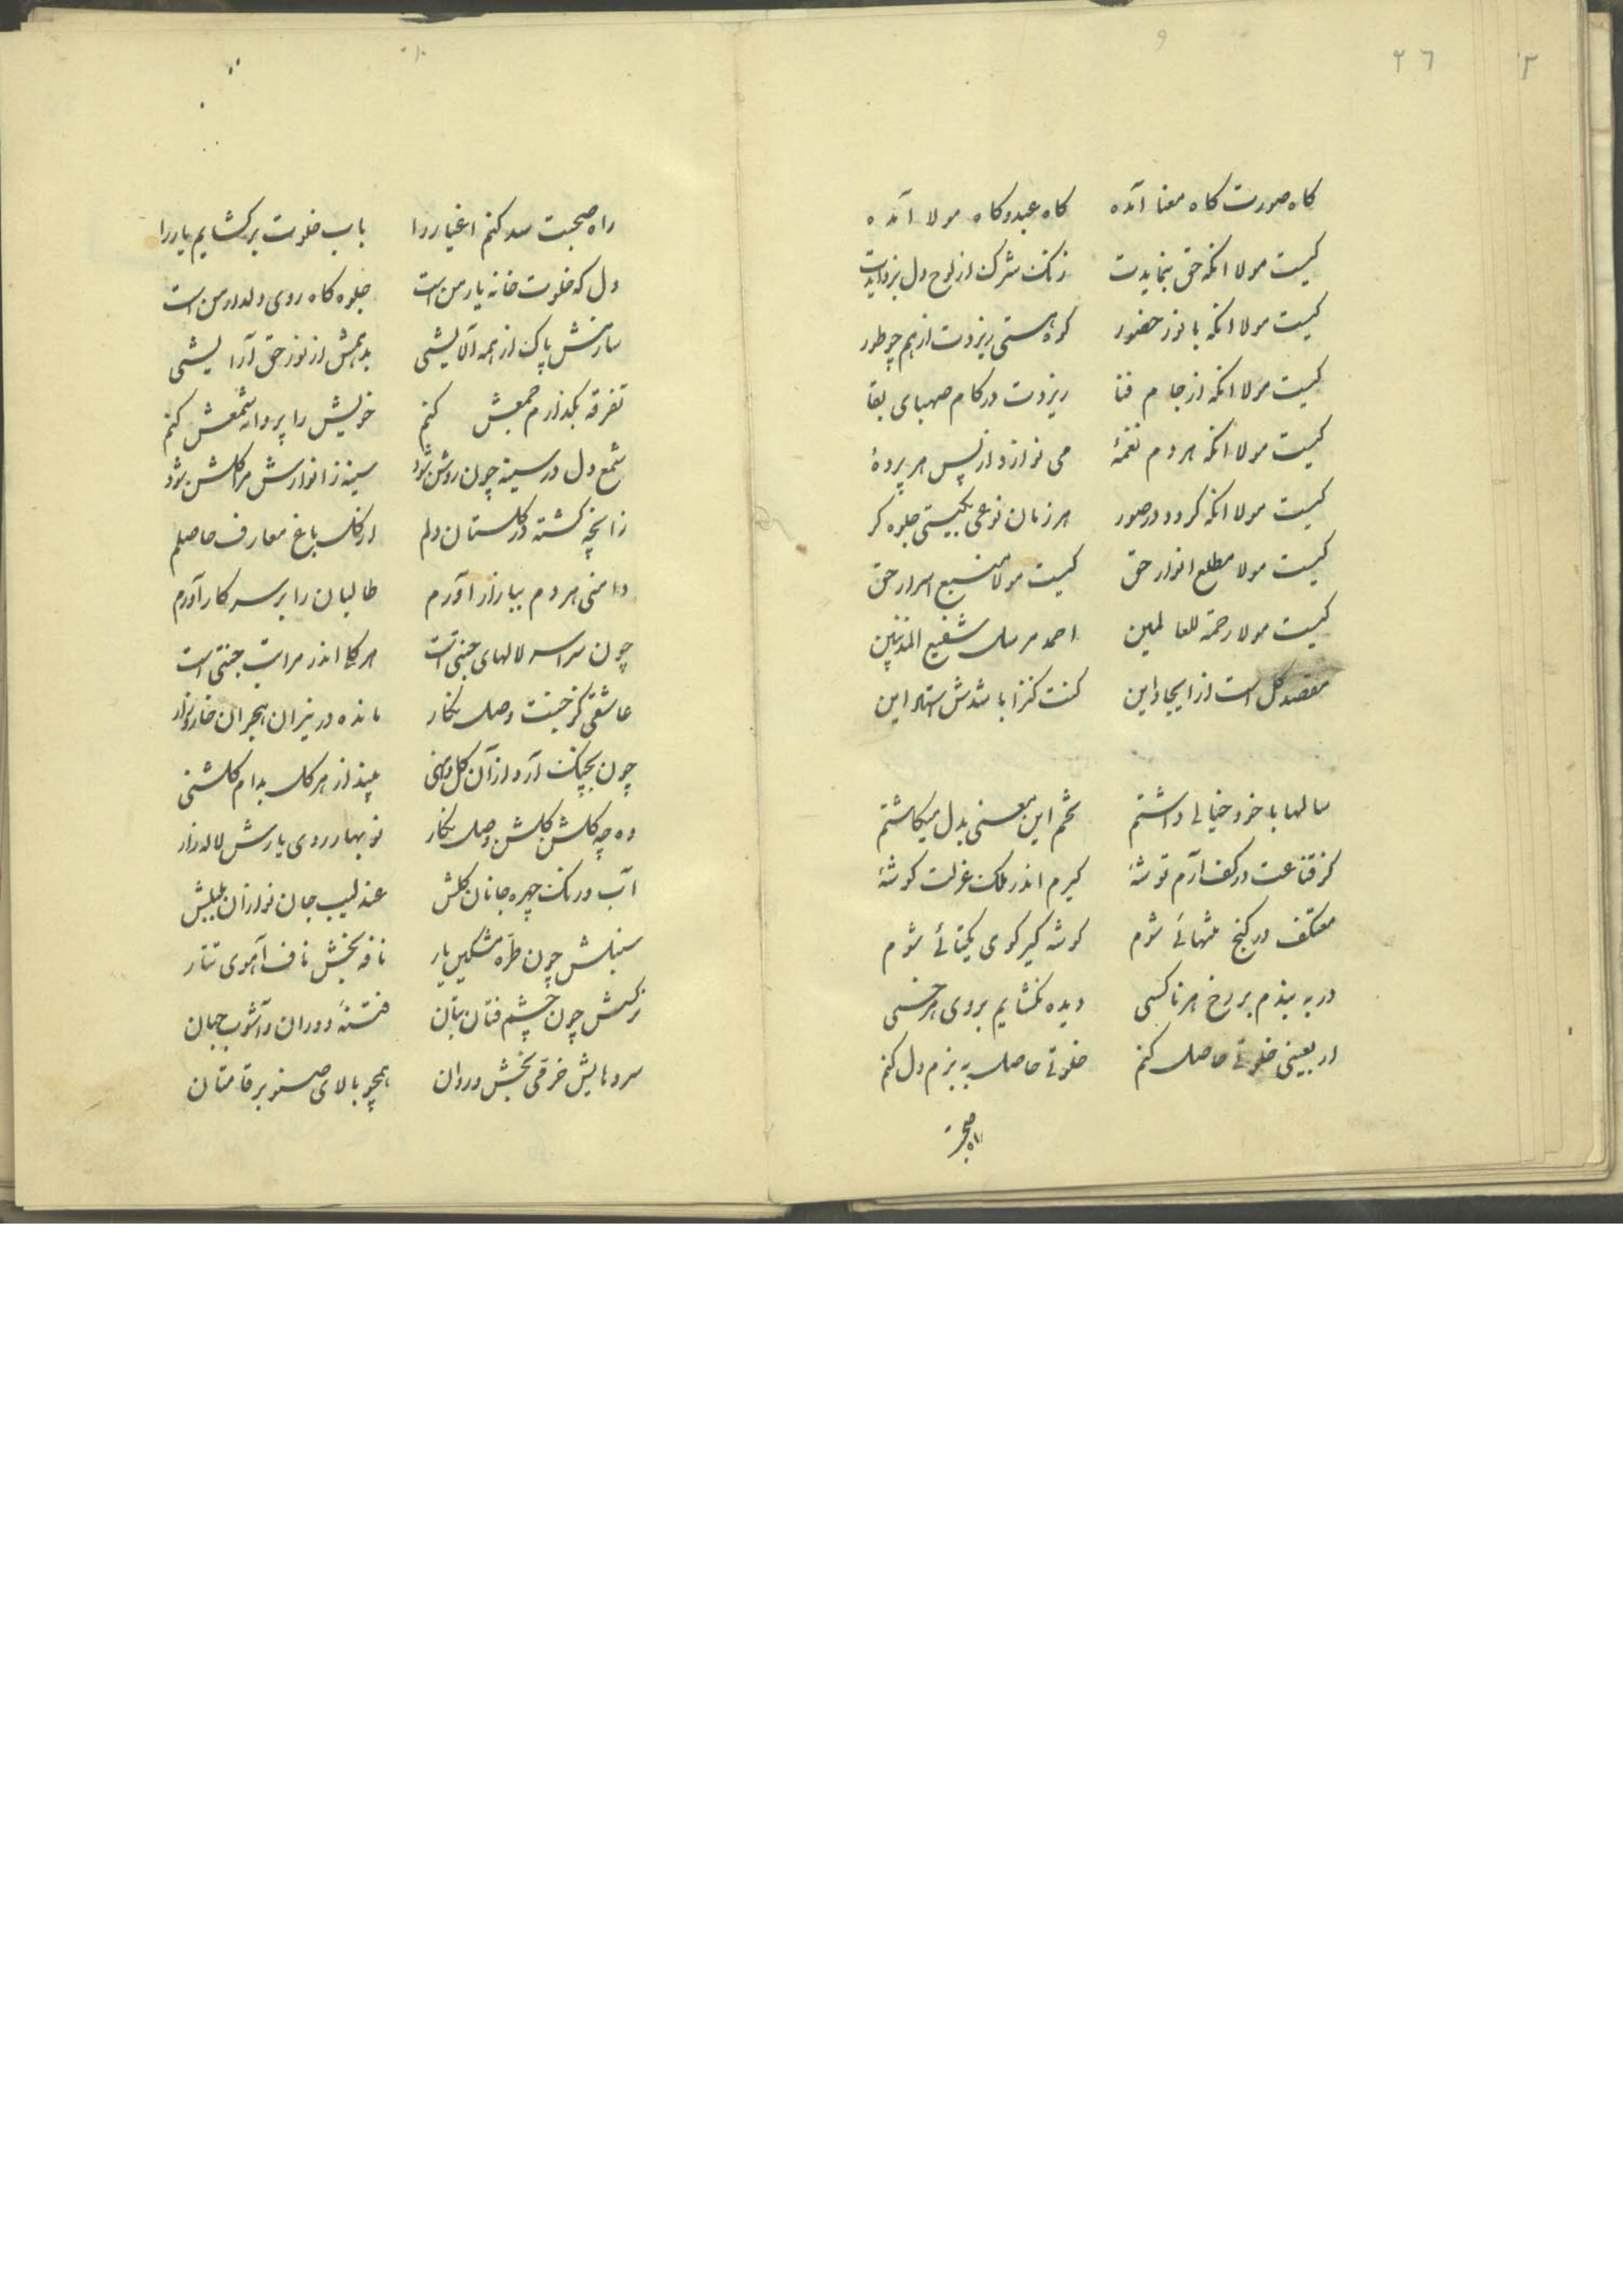 ٢٦
٣
٩
کاه صورت کاه معنا آمده کاه عبد و کاه مولا آمده
کیست مولا انکه حق بنمایدت زنک شرک از لوح دل بزدایدت
کیست مولا انکه با نور حضور کوه هستی ریزدت از هم چو طور
کیست مولا انکه از جام فنا ریزدت در کام صهبای بقا
کیست مولا انکه هر دم نغمهٔ می نوازد از پس هر پردهٔ
کیست مولا انکه کردد در صور هر زمان نوعی بکیتی جلوه کر
کیست مولا مطلع انوار حق کیست مولا منبع اسرار حق
کیست مولا رحمة للعالمین احمد مرسل شفیع المذنبین
مقصد کل است از ایجاد این کنت کنزا باشدش اسناد این
سالها با خود خیالی داشتم تخم این معنی بدل میکاشتم
کز قناعت در کف آرم توشهٔ کیرم اندر ملک عزلت کوشهٔ
معتکف در کنج تنهائی شوم کوشه کیر کوی یکتائی شوم
در به بندم بر رخ هر ناکسی دیده نکشایم بروی هر خسی
اربعینی خلوتی حاصل کنم خلوتی حاصل به بزم دل کنم
راه صحبت
١٠
راه صحبت سد کنم اغیار را باب خلوت برکشایم یار را
دل که خلوت خانه یار من است جلوه کاه روی دلدار من است
سازمش پاک از همه آلایشی بدهمش از نور حق آرایشی
تفرقه بکذارم جمعش کنم خویش را پروانه شمعش کنم
شمع دل در سینه چون روشن شود سینه ز انوارش مرا کلشن شود
زانچه کشته در کلستان دلم از کل باغ معارف حاصلم
دامنی هر دم ببازار آورم طالبان را بر سر کار آورم
چون سراسر لالهای جنتی است هر یکی اندر مراتب جنتی است
عاشقی کز جنت وصل نکار مانده در نیران هجران خار و زار
چون بچنک آرد از آن کل دامنی بیند از هر کل بدام کلشنی
وه چه کلشن کلشن وصل نکار نوبهار روی یارش لاله زار
آب و رنک چهره جانان کلش عندلیب جان نوازان بلبلش
سنبلش چون طره مشکین یار نافه بخش ناف آهوی تتار
نرکسش چون چشم فتان بتان فتنهٔ دوران و آشوب جهان
سروهایش خرقی بخش و روان همچو بالای صنوبر قامتان